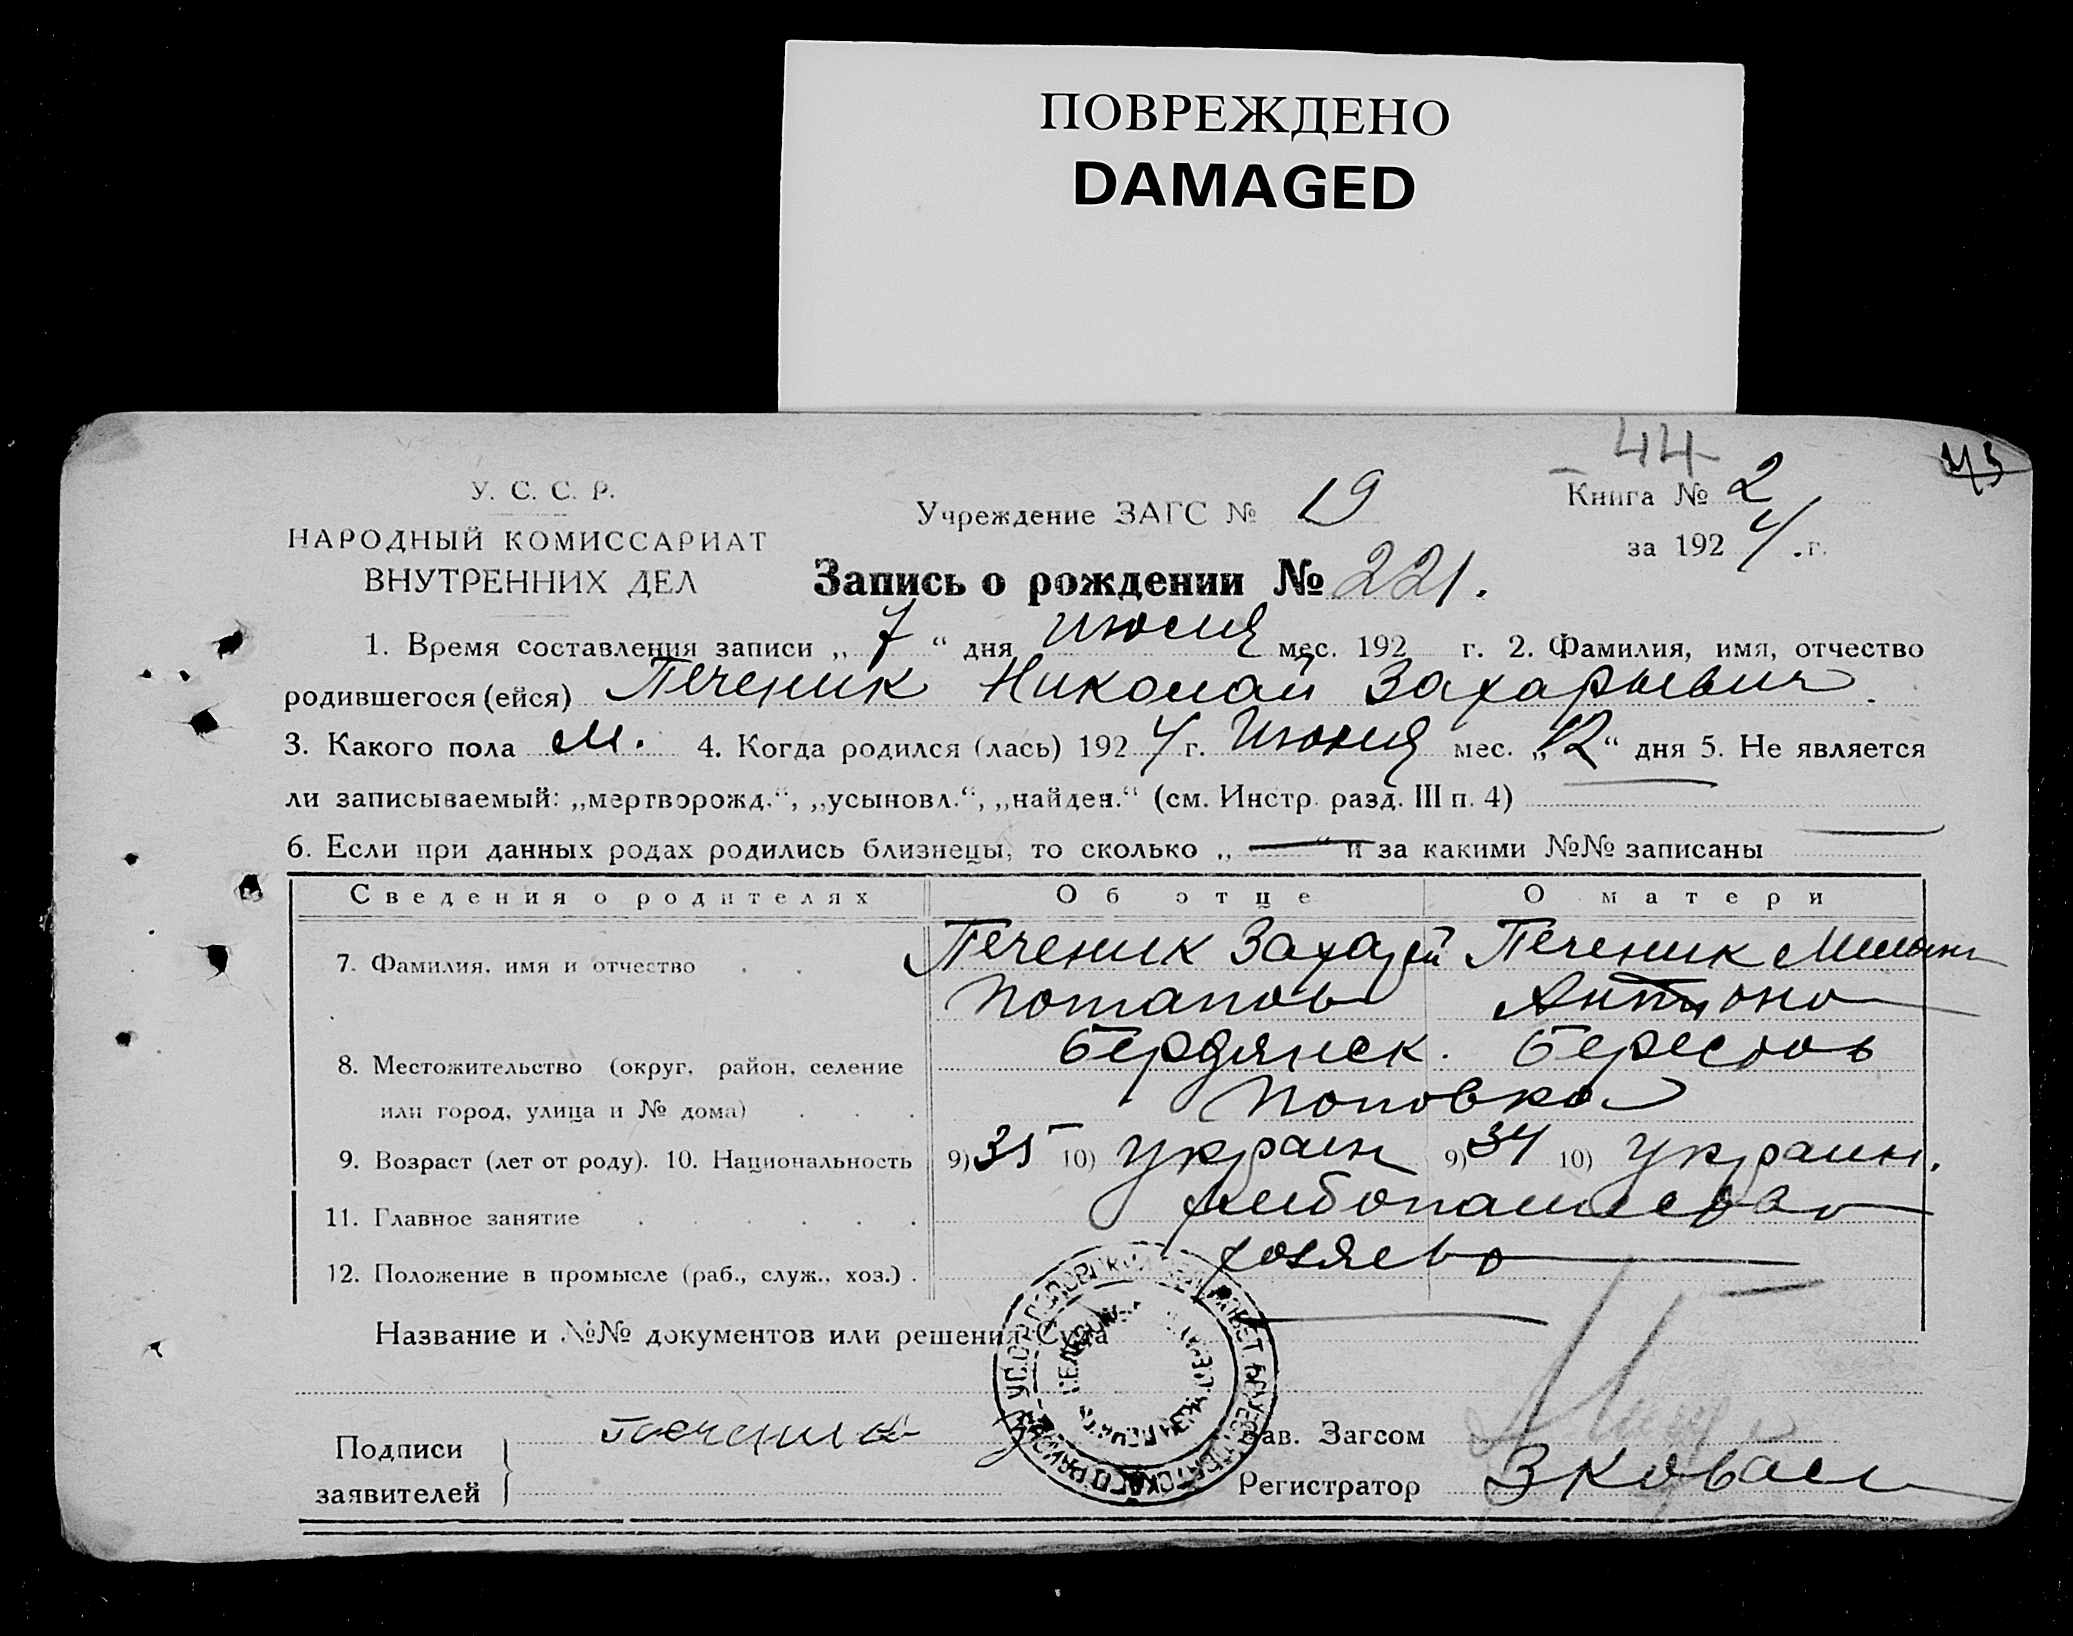 ПОВРЕЖДЕНО
DAMAGED
44
У. С. С. Р.
НАРОДНЫЙ КОМИССАРИАТ
ВНУТРЕННИХ ДЕЛ
Учреждение ЗАГС № 19
Книга № 2
за 1924 г.
Запись о рождении № 221.
1. Время составления записи „7“ дня июля мес. 192 г. 2. Фамилия, имя, отчество
родившегося (ейся) Печеник Николай Захарьевич.
3. Какого пола м. 4. Когда родился (лась) 1924 г. Июня мес. „12“ дня 5. Не является
ли записываемый: „мертворожд.“, „усыновл.“, „найден.“ (см. Инстр. разд. III п. 4)
6. Если при данных родах родились близнецы, то сколько „—“ и за какими №№ записаны
Сведения о родителях Об отце О матери
7. Фамилия, имя и отчество . . Печеник Захарий Печеник
Потапов
8. Местожительство (округ, район, селение Бердянск. Берестов
или город, улица и № дома) . . . Поповка
9. Возраст (лет от роду). 10. Национальность 9) 35 10) украин 9) 34 10) украин.
11. Главное занятие . . . . . . хлебопашество
12. Положение в промысле (раб., служ., хоз.) . хозяева
Название и №№ документов или решения Суда
Подписи
заявителей
Печеник З
Зав. Загсом
Регистратор ЗКовал